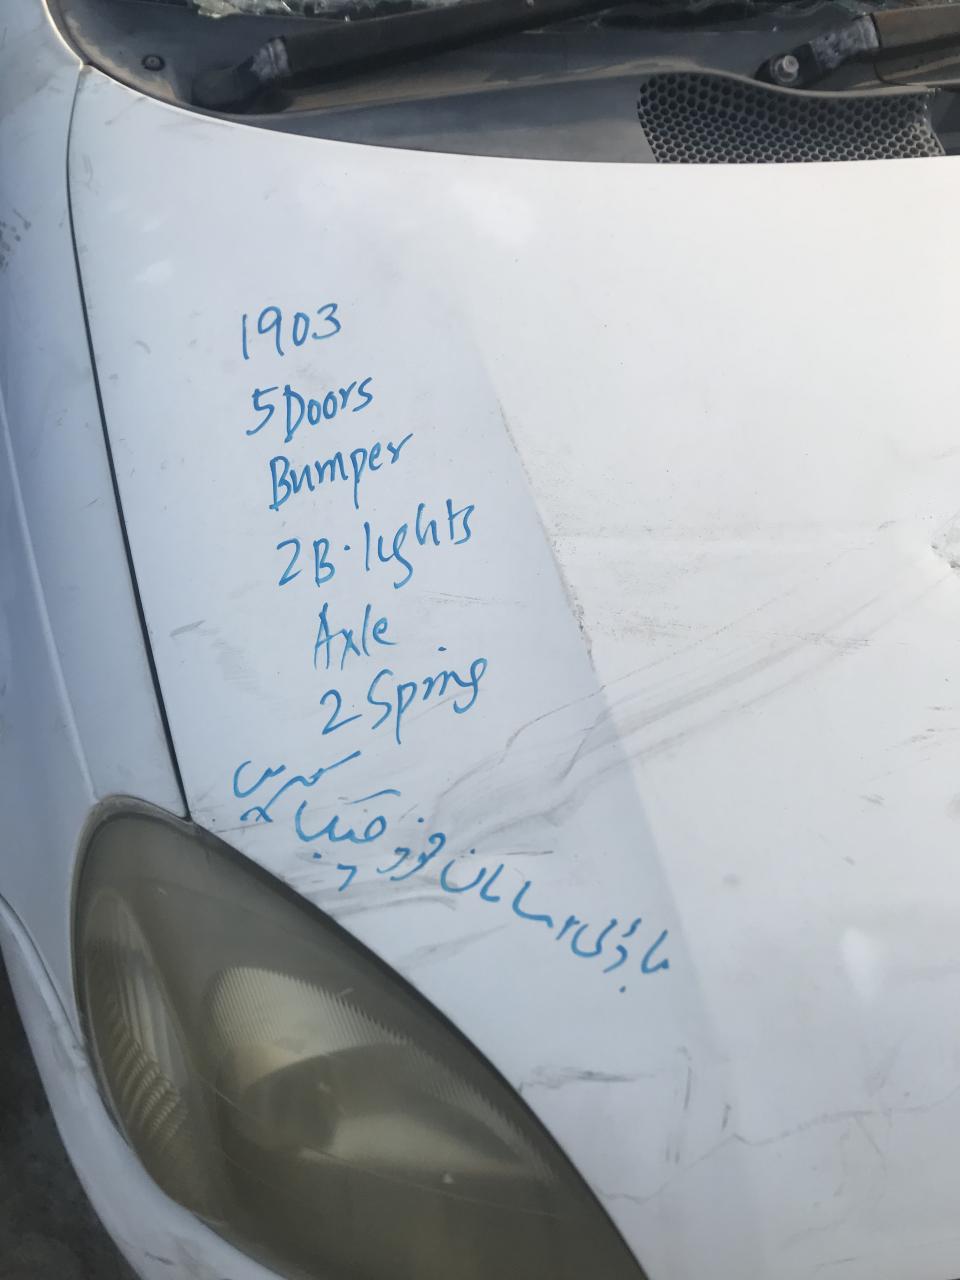 1903
5 Doors
Bumper
2 B. lights
Axle
2 Spring
باڈی سامان